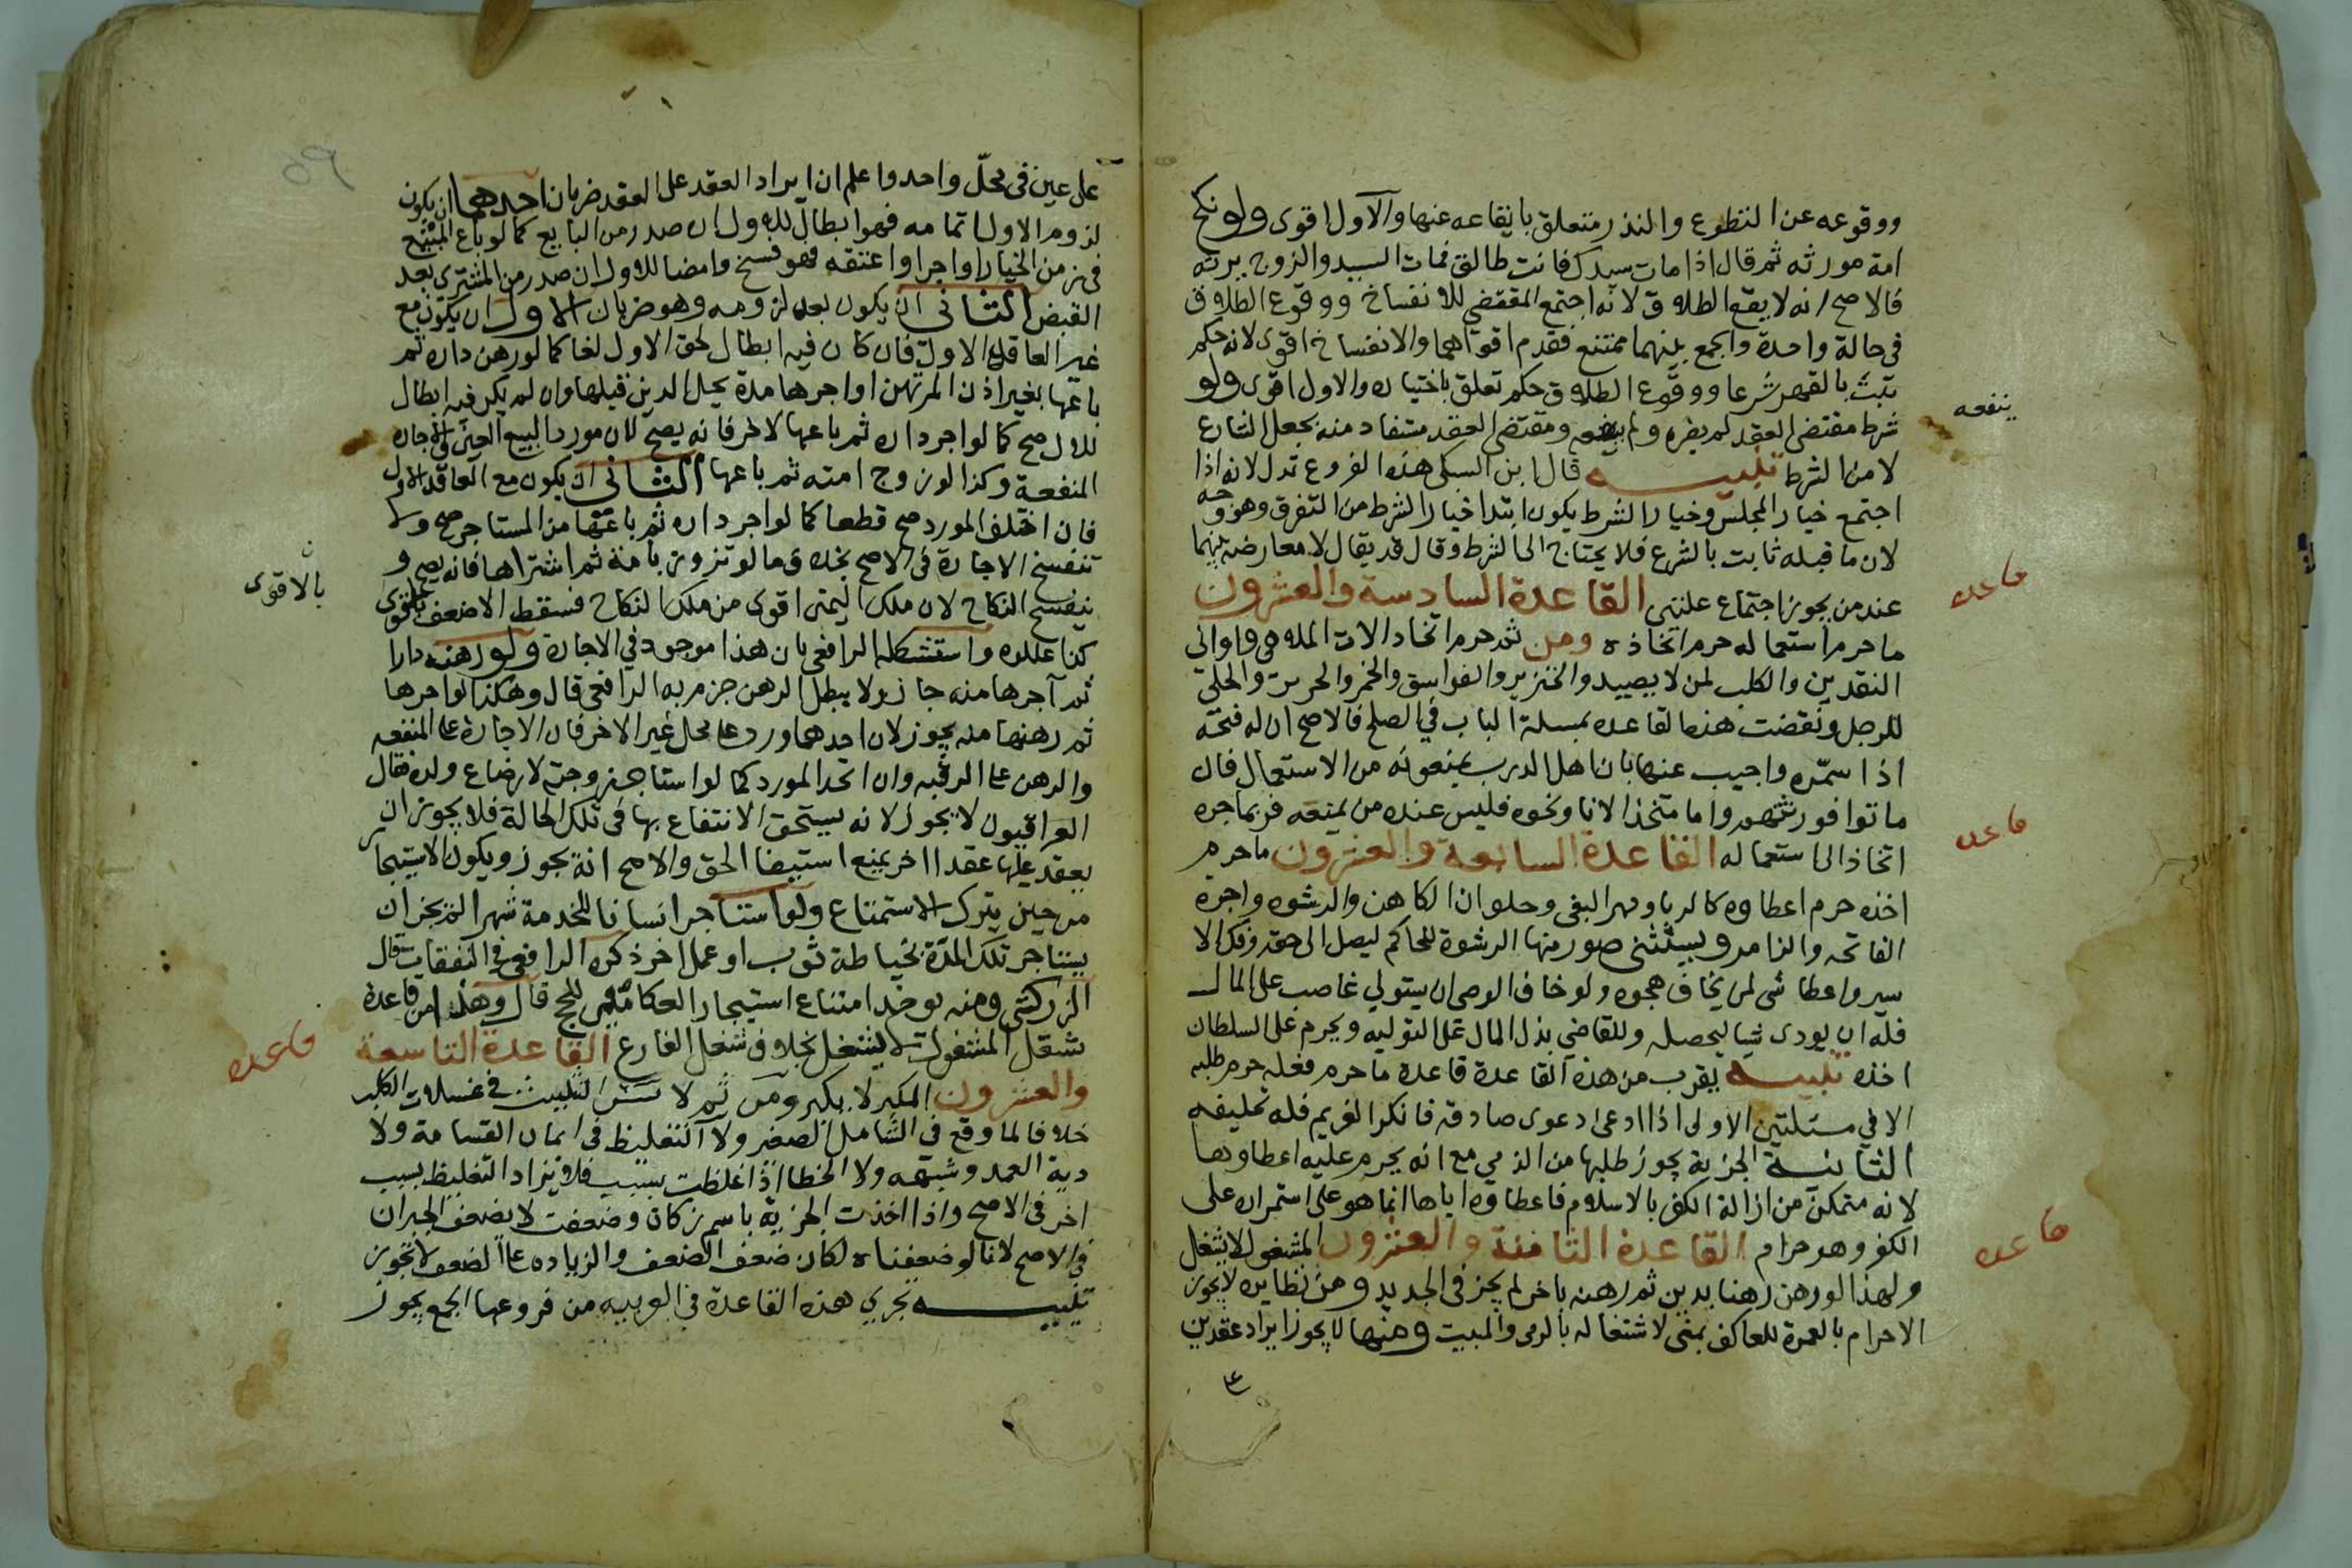 ووقوعه عن التطوع والنذر متعلق بايقاعه عنها والاول اقوى ولو نكح
امة مورثه ثم قال اذا مات سيدك فانت طالق فمات السيد والزوج يرثه
فالاصح انه لا يقع الطلاق لانه اجتمع المقتضي للانفساخ ووقوع الطلاق
في حالة واحدة والجمع بينهما ممتنع فقدم اقواهما والانفساخ اقوى لانه حكم
يثبت بالقهر شرعا ووقوع الطلاق حكم تعلق باختياره والاول اقوى ولو
شرط مقتضى العقد لم يضره ولم ينفعه ومقتضى العقد مستفاد منه بجعل الشارع
ينفعه
لا من الشرط تنبيه قال ابن السبكي هذه الفروع تدل لانه اذا
اجتمع خيار المجلس وخيار الشرط يكون ابتدا خيار الشرط من التفرق وهو وجه
لان ما قبله ثابت بالشرع فلا يحتاج الى الشرط وقال قد يقال لا معارضة بينهما
عند من يجوز اجتماع علتين القاعدة السادسة والعشرون
قاعده
ما حرم استعماله حرم اتخاذه ومن ثم حرم اتخاد الات الملاهي واواني
النقدين والكلب لمن لا يصييد والخنزير والفواسق والخمر والحرير والحلي
للرجل ونقضت هذه القاعده بمسلة الباب في الصلح فالاصح ان له فتحه
اذا سمّره واجيب عنها بان اهل الدرب يمنعونه من الاستعمال فان
ماتوا فورثتهم واما متخذ الانا ونحوه فليس عنده من يمنعه فربما جره
اتخاذ الى استعماله القاعدة السابعة والعشرون ما حرم
قاعده
اخذه حرم اعطاوه كالربا ومهر البغي وحلوان الكاهن والرشوه واجرة
النائحه والزامر ويستثنى صور منها الرشوة للحاكم ليصل الى حقه وفك الا
سير واعطا شي لمن يخاف هجوه ولو خاف الوصي ان يستولي غاصب على المال
فله ان يودى شيا ليحصله وللقاضي بذل المال على التوليه ويحرم على السلطان
اخذه تنبيه يقرب من هذه القاعدة قاعدة ما حرم فعله حرم طلبه
الا في مسئلتين الاولى اذا ادعى دعوى صادقه فانكر الغريم فله تحليفه
الثانية الجزية يجوز طلبها من الذمي مع انه يحرم عليه اعطاوها
لانه متمكن من ازالة الكفر بالاسلام فاعطاوه اياها انما هو على استمراره على
الكفر وهو حرام القاعدة الثامنة والعشرون المشغول لا يشغل
قاعده
ولهذا لو رهن رهنا بدين ثم رهنه باخر لم يجز في الجديد ومن نظايره لا يجوز
الاحرام بالعمرة للعاكف بمنى لاشتغاله بالرمي والمبيت ومنها لا يجوز ايراد عقدين
على عين في محلّ واحد واعلم ان ايراد العقد على العقد ضربان احدهما ان يكون
لزوم الاول اتمامه فهو ابطال للاول ان صدر من البايع كما لو باع المبيع
في زمن الخيار او اجر او اعتقه فهو فسخ وامضا للاول ان صدر من المشتري بعد
القبض الثاني ان يكون بعد لزومه وهو ضربان الاول ان يكون مع
غير العاقد الاول فان كان فيه ابطال لحق الاول لغا كما لو رهن داره ثم
باعها بغير اذن المرتهن او اجرها مدة يحل الدين قبلها وان لم يكن فيه ابطال
للاول صح كما لو اجر داره ثم باعها لاخر فانه يصح لان مورد البيع العين والاجارة
المنفعة وكذا لو زوج امته ثم باعها الثاني ان يكون مع العاقد الاول
فان اختلف المورد صح قطعا كما لو اجر داره ثم باعها من المستاجر صح ولا
تنفسخ الاجارة في الاصح بخلاف ما لو تزوج بامة ثم اشتراها فانه يصح و
ينفسخ النكاح لان ملك اليمين اقوى من ملك النكاح فسقط الاضعف بالاقوى
بالاقوى
كذا عللوه واستشكله الرافعي بان هذا موجود في الاجارة ولو رهنه دارا
ثم آجرها منه جاز ولا يبطل الرهن جزم به الرافعي قال وهكذا لو اجرها
ثم رهنها منه يجوز لان احدهما ورد على محل غير الاخر فان الاجارة على المنفعه
والرهن على الرقبه وان اتحد المورد كما لو استاجر زوجته لارضاع ولده فقال
العراقيون لا يجوز لانه يستحق الانتفاع بها في تلك الحالة فلا يجوز ان
يعقد عليها عقدا اخر يمنع استيفا الحق والاصح انه يجوز ويكون الاستيجار
من حين يترك الاستمتاع ولو استاجر انسانا للخدمة شهرا لم يجز ان
يستاجر تلك المدة لخياطة ثوب او عمل اخر ذكره الرافعي في النفقات قال
الزركشي ومنه يوخذ امتناع استيجار العكامين للحج قال وهذا من قاعدة
شغل المشغول لا يشغل بخلاف شغل الفارغ القاعدة التاسعة
قاعده
والعشرون المكبر لا يكبر ومن ثم لا التثليث في غسلات الكلب
خلافا لما وقع في الشامل الصغير ولا التغليظ في ايمان القسامة ولا
دية العمد وشبهه ولا الخطا اذا غلظت بسبب فلا يزاد التغليظ بسبب
اخر في الاصح واذا اخذت الجزية باسم زكاة وضعفت لا يضعف الجبران
في الاصح لانا لو ضعفناه لكان ضعف الضعف والزياده على الضعف لا تجوز
تنبيه تجري هذه القاعدة في العربيه من فروعها الجمع يجوز